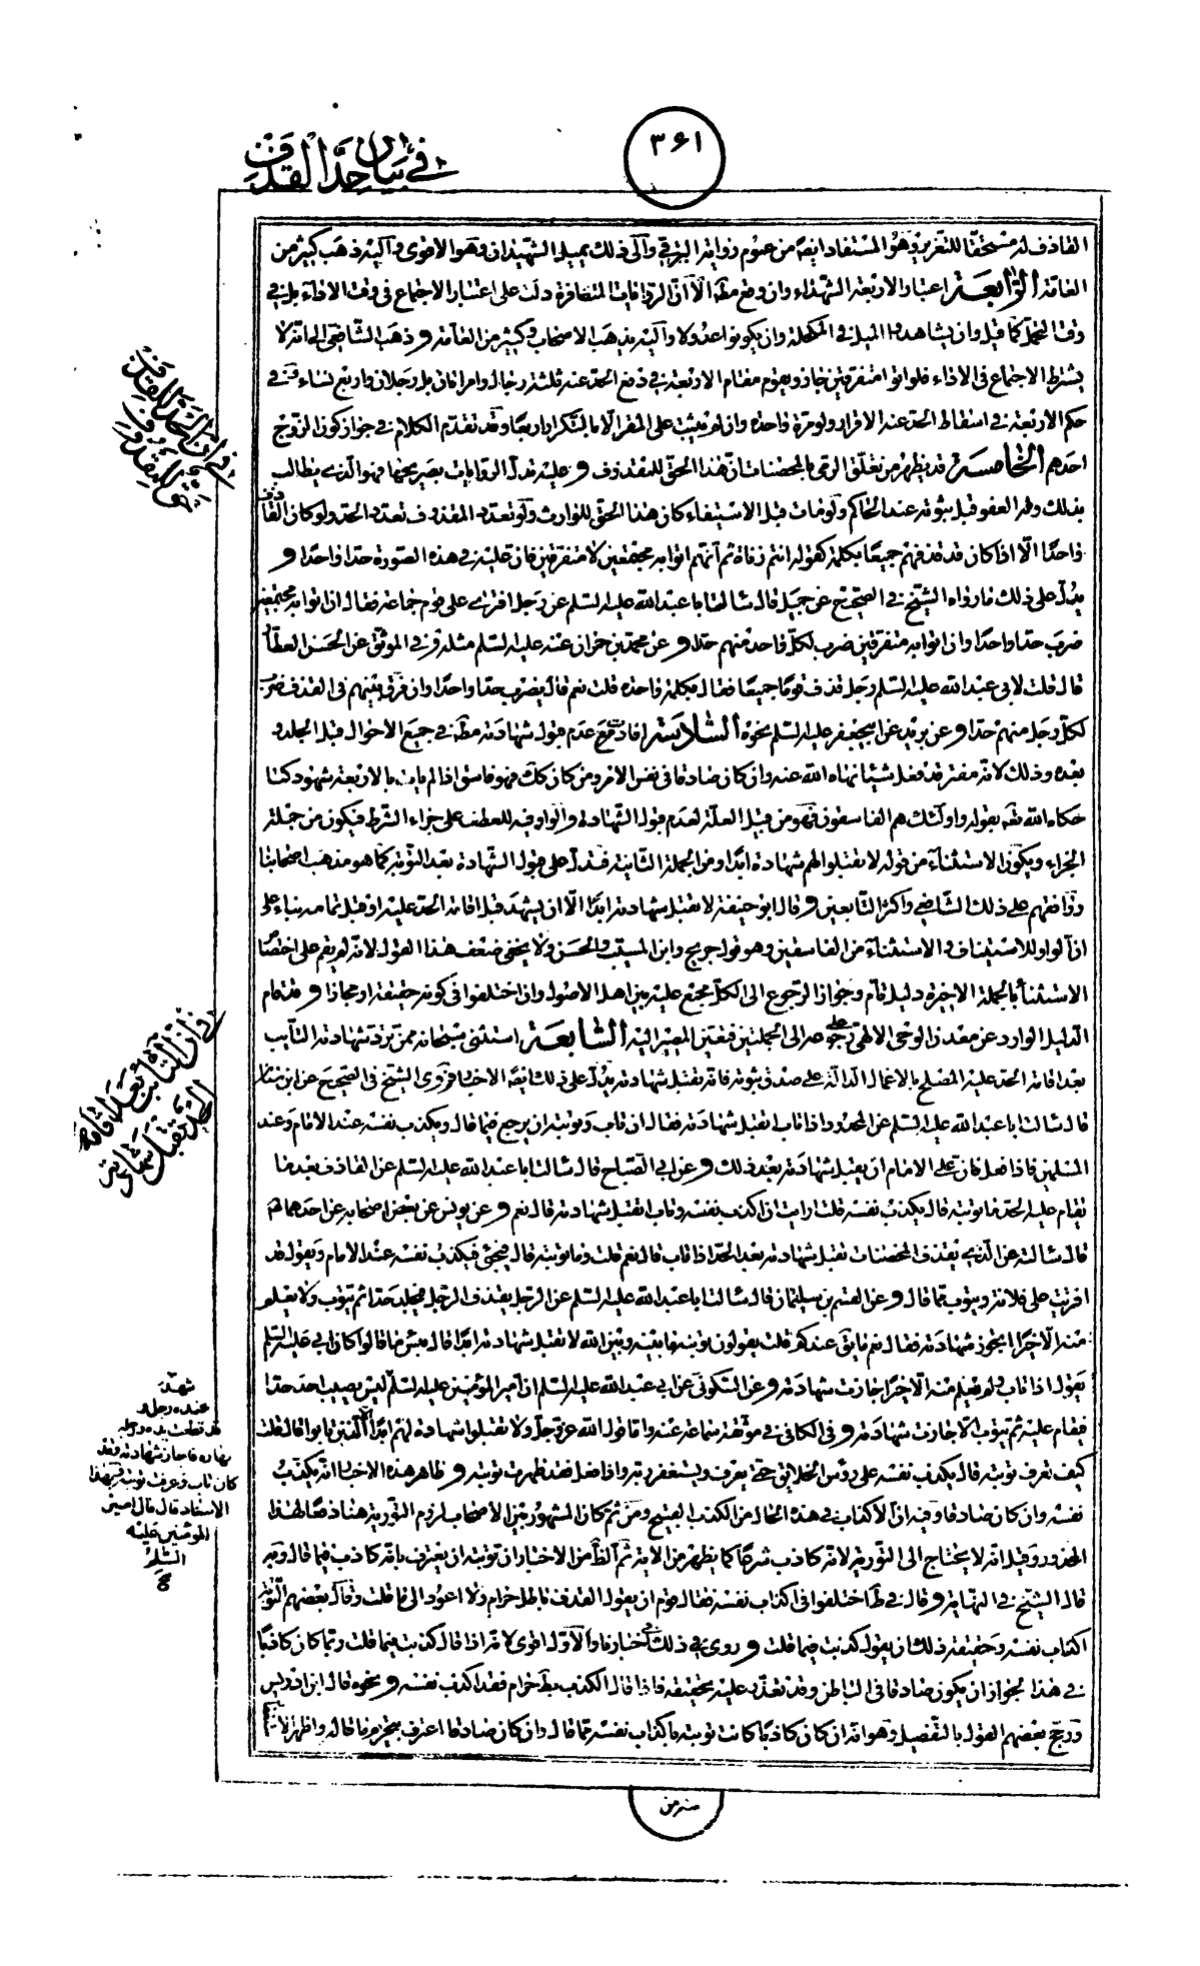 في بيان حدّ القذف
٣۶١
القاذف له مستحقا للتعزير وهو المستفاد ايضا من عموم رواية البزوفري وآلى ذلك يميل الشهيدان وهو الاقوى وآليه ذهب كثير من
العامة الرّابعة اعتبار الاربعة الشهداء وان وقع مطلقا الّا انّ الروايات المتضافرة دلت على اعتبار الاجتماع في وقت الاداء بل في
وقت التحمل كما قيل وان يشاهدوا الميل في المكحلة وان يكونوا عدولا وآليه يذهب الاصحاب وكثير من العامة و ذهب الشافعي الى انه لا
يشترط الاجتماع في الاداء فلو اتوا متفرقين جاز ويقوم مقام الاربعة في دفع الحد عنه ثلثة رجال وامراتان بل رجلان واربع نساء في
حكم الاربعة في اسقاط الحد عنه الاقرار ولو مرة واحدة وان لم يثبت على المقر الا بالتكرار اربعا وقد تقدّم الكلام في جواز كون الزوج
احدهم الخامسة قد يظهر من تعلّق الرمي بالمحصنات انّ هذا الحق للمقذوف و عليه تدل الروايات بصريحها فهو الّذي يطالب
بذلك وله العفو قبل ثبوته عند الحاكم ولو مات قبل الاستيفاء كان هذا الحق للوارث ولو تعدد المقذوف تعدد الحد ولو كان القاذف
واحدا الّا اذا كان قد قذفهم جميعا بكلمة كقوله انتم زناة ثم آنهم اتوا به مجتمعين لا متفرقين فان عليه في هذه الصورة حدا واحدا و
يدلّ على ذلك ما رواه الشيخ في الصحيح عن جميل قال سالت ابا عبد الله عليه السلم عن رجل افترى على قوم جماعة فقال ان اتوا به مجتمعين
ضرب حدا واحدا وان اتوا به متفرقين ضرب لكلّ واحد منهم حدا و عن محمد بن حمران عنه عليه السلم مثله و في الموثق عن الحسن العطار
قال قلت لابي عبد الله عليه السلم رجل قذف قوما جميعا فقال بكلمة واحدة قلت نعم قال يضرب حدا واحدا وان فرق بينهم في القذف ضرب
لكلّ رجل منهم حدا و عن بريد عن ابي جعفر عليه السلم نحوه السّادسة افادت مع عدم قبول شهادته مطلقا في جميع الاحوال قبل الجلد و
بعده وذلك لانه مفتر قد فعل شيئا نهاه الله عنه وان كان صادقا في نفس الامر ومن كان كك فهو فاسق اذا لم يات بالاربعة شهود كما
حكاه الله تعه بقوله واولئك هم الفاسقون فهو من قبيل العلة لعدم قبول الشهادة والواو فيه للعطف على جزاء الشرط فيكون من جملة
الجزاء ويكون الاستثناء من قوله لا تقبلوا لهم شهادة ابدا ومن الجملة الثانية فدل على قبول الشهادة بعد التوبة كما هو مذهب اصحابنا
ووافقهم على ذلك الشافعي واكثر التابعين و قال ابو حنيفة لا تقبل شهادته ابدا الّا ان يشهد قبل اقامة الحد عليه او قبل تمامه بناء على
ان الواو للاستيناف والاستثناء من الفاسقين وهو قول جريج وابن المسيب والحسن ولا يخفى ضعف هذا القول لانه لم يقم على اختصاص
الاستثناء بالجملة الاخيرة دليل تام وجواز الرجوع الى الكلّ مجمع عليه بين اهل الاصول وان اختلفوا في كونه حقيقة او مجازا و قد قام
الدليل الوارد عن معدن الوحي الالهي على رجوعه الى الجملتين فتعين المصير اليه السّابعة استثنى سبحانه ممن ترد شهادته التائب
بعد اقامة الحد عليه المصلح بالاعمال الدالة على صدق توبته فانه تقبل شهادته يدلّ على ذلك ايضا الاخبار و روى الشيخ في الصحيح عن ابن سنان
قال سالت ابا عبد الله عليه السلم عن المحدود اذا تاب اتقبل شهادته فقال ان تاب وتوبته ان يرجع فيما قال ويكذب نفسه عند الامام وعند
المسلمين فاذا فعل فان على الامام ان يقبل شهادته بعد ذلك و عن ابي الصباح قال سالت ابا عبد الله عليه السلم عن القاذف بعد ما
يقام عليه الحد ما توبته قال يكذب نفسه قلت ارايت ان اكذب نفسه وتاب اتقبل شهادته قال نعم و عن يونس عن بعض اصحابه عن احدهما ع
قال سالته عن الّذي يقذف المحصنات تقبل شهادته بعد الحد اذا تاب قال نعم قلت وما توبته قال يجئ فيكذب نفسه عند الامام ويقول قد
افتريت على فلانة ويتوب مما قال و عن القسم بن سليمان قال سالت ابا عبد الله عليه السلم عن الرجل يقذف الرجل فيجلد حدا ثم يتوب ولا يعلم
منه الّا خيرا ايجوز شهادته فقال نعم ما يق عندكم قلت يقولون توبته فيما بينه وبين الله لا تقبل شهادته ابدا قال بئس ما قالوا كان ابي عليه السلم
يقول اذا تاب ولم يعلم منه الّا خيرا جازت شهادته و عن السكوني عن ابي عبد الله عليه السلم ان امير المؤمنين عليه السلم قال ليس يصيب احد حدا
فيقام عليه ثم يتوب الّا جازت شهادته و في الكافي في موثقة سماعة عنه واما قول الله عز وجل ولا تقبلوا لهم شهادة ابدا الّا الّذين تابوا قال قلت
كيف تعرف توبته قال يكذب نفسه على رؤس الخلايق حتى يعرف ويستغفر ربه واذا فعل فقد ظهرت توبته و ظاهر هذه الاخبار انه يكذب
نفسه وان كان صادقا وفيه ان الاكذاب في هذه الحال من الكذب القبيح ومن ثم كان المشهور بين الاصحاب لزوم التورية هنا دفعا لهذا
المحذور وقيل انه لا يحتاج الى التورية لانه كاذب شرعا كما يظهر من الاية ثم الظاهر من الاخبار ان توبته ان يعترف بانه كاذب فيما قال وبه
قال الشيخ في النهاية و قال في ط اختلفوا في اكذاب نفسه فقال قوم ان يقول القذف باطل حرام ولا اعود الى ما قلت وقال بعضهم التوبة
اكذاب نفسه وحقيقة ذلك ان يقول كذبت فيما قلت و روى في ذلك في اخبارنا والاول اقوى لانه اذا قال كذبت فيما قلت ربما كان كاذبا
في هذا لجواز ان يكون صادقا في الباطن وقد تعذر عليه تحقيقه فاذا قال الكذب بط حرام فقد اكذب نفسه و نحوه قال ابن ادريس
ورجح بعضهم القول بالتفصيل وهو انه ان كان كاذبا كانت توبته باكذاب نفسه مما قال وان كان صادقا اعترف بتحريم ما قاله واظهر
في ان الحد للقذف
حق المقذوف
في ان التائب بعد اقامة
الحد تقبل شهادته
شهد
عنده رجل و
قد قطعت يده ورجله
بشهادة فاجاز شهادته وقد
كان تاب وعرفت توبته وبهذا
الاسناد قال قال امير
المؤمنين عليه
السلم
منه من